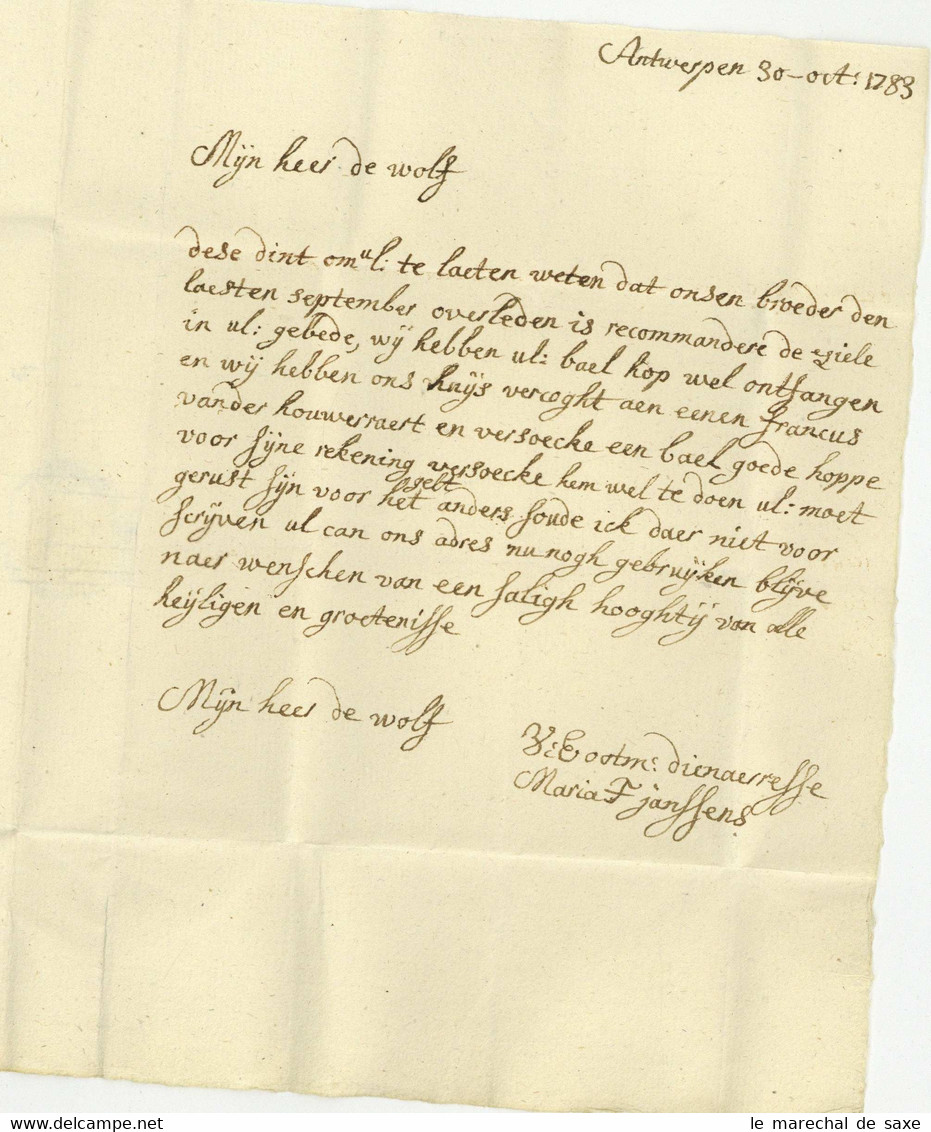 Antwerpen 30-oct: 1783
Mÿn heer de wolf
dese dint om ul: te laeten weten dat onsen broeder den
laesten september overleden is recommandere de ziele
in ul: gebede, wÿ hebben ul: bael hop wel ontfangen
en wÿ hebben ons huÿs vercoght aen eenen francus
vander houwerraert en versoecke een bael goede hoppe
voor sÿne rekening versoecke hem wel te doen ul: moet
gerust sÿn voor het gelt anders soude ick daer niet voor
scrÿven ul can ons adres nu nogh gebruÿken blÿve
naer wenschen van een saligh hooghtÿ van alle
heÿligen en groetenisse
Mÿn heer de wolf
V:E ootm: dienaerresse
Maria F janssens
©delcampe.net
le marechal de saxe